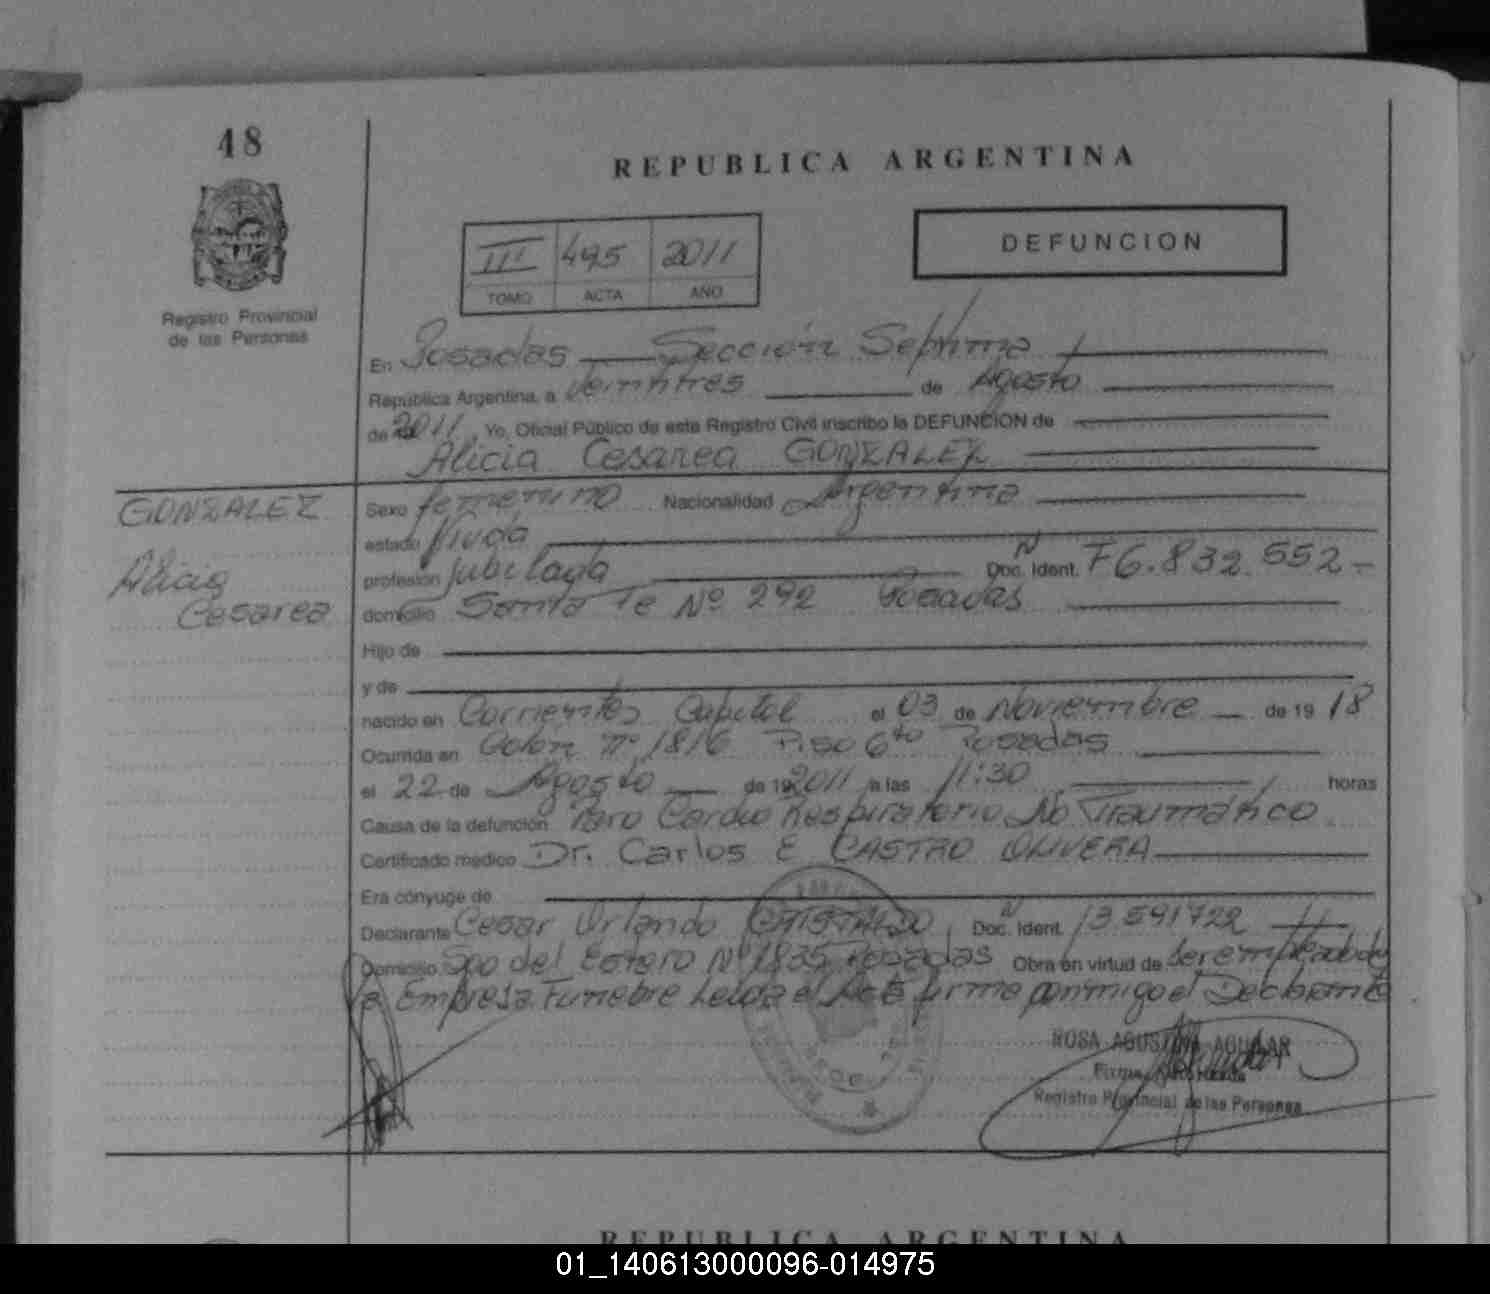 48
REPUBLICA ARGENTINA
III 495 2011
TOMO ACTA AÑO
DEFUNCION
Registro Provincial
de las Personas
En Posadas Sección Septima
República Argentina, a Veintitres de Agosto
de 2011 Yo, Oficial Público de este Registro Civil inscribo la DEFUNCION de
Alicia Cesarea GONZALEZ
GONZALEZ
Alicia
Cesarea
Sexo femenino Nacionalidad Argentina
estado Viuda
profesión jubilada Doc. Ident. F6.832.552-
domicilio Santa Fe Nº 292 Posadas
Hijo de
y de
nacido en Corrientes Capital el 03 de Noviembre de 19 18
Ocurrida en Colón nº 1816 Piso 6to Posadas
el 22 de Agosto de 19 2011 a las 11:30 horas
Causa de la defunción Paro Cardio Respiratorio No Traumático
Certificado médico Dr. Carlos E CASTRO OLIVERA
Era cónyuge de
Declarante Cesar Orlando Doc. Ident. 13.591722
Domicilio Sgo del Estero Nº 1835 Posadas Obra en virtud de ser empleado de
la Empresa Funebre Leida el Acta firma conmigo el Declarante
ROSA AGUSTINA AGUILAR
Firma Autorizada
Registro Provincial de las Personas
REPUBLICA ARGENTINA
01_140613000096-014975